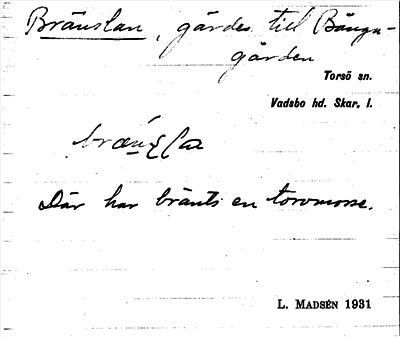 Bränslan, gärdes till Bänga-
gården
Torsö sn.
Vadsbo hd. Skar. l.
Där har bränts en torvmosse.
L. MADSÉN 1931